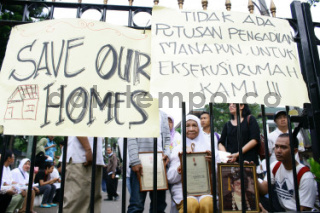 SAVE OUR
HOMES
TIDAK ADA
PUTUSAN PENGADILAN
MANAPUN UNTUK
EKSEKUSI RUMAH
KAMI !!!
tempo.co